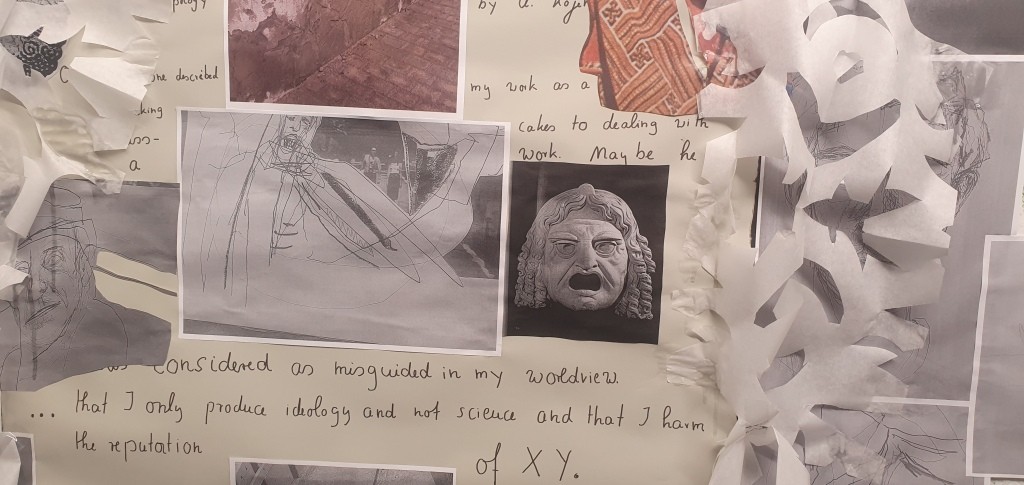 by a.
described
my work as a
king
cakes to dealing with
a
work. May be he
considered as misguided in my worldview.
... that I only produce ideology and not science and that I harm
the reputation
of XY.